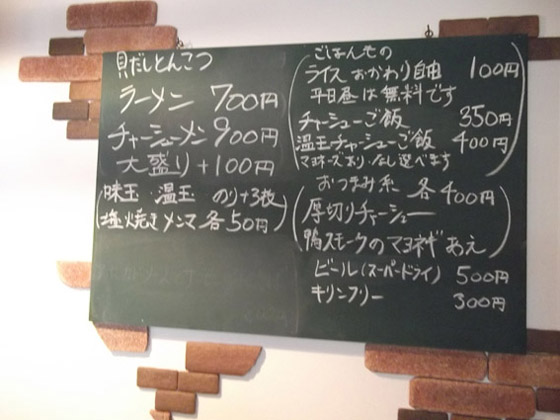 貝だしとんこつ
ラーメン 700円
チャーシューメン 900円
大盛り +100円
味玉・温玉 のり+3枚
塩焼きメンマ 各50円
ごはんもの
ライス おかわり自由 100円
平日昼は無料です
チャーシューご飯 350円
温玉チャーシューご飯 400円
マヨネーズあり・なし選べます
おつまみ系 各400円
厚切りチャーシュー
鴨スモークのマヨネギあえ
ビール(スーパードライ) 500円
キリンフリー 300円